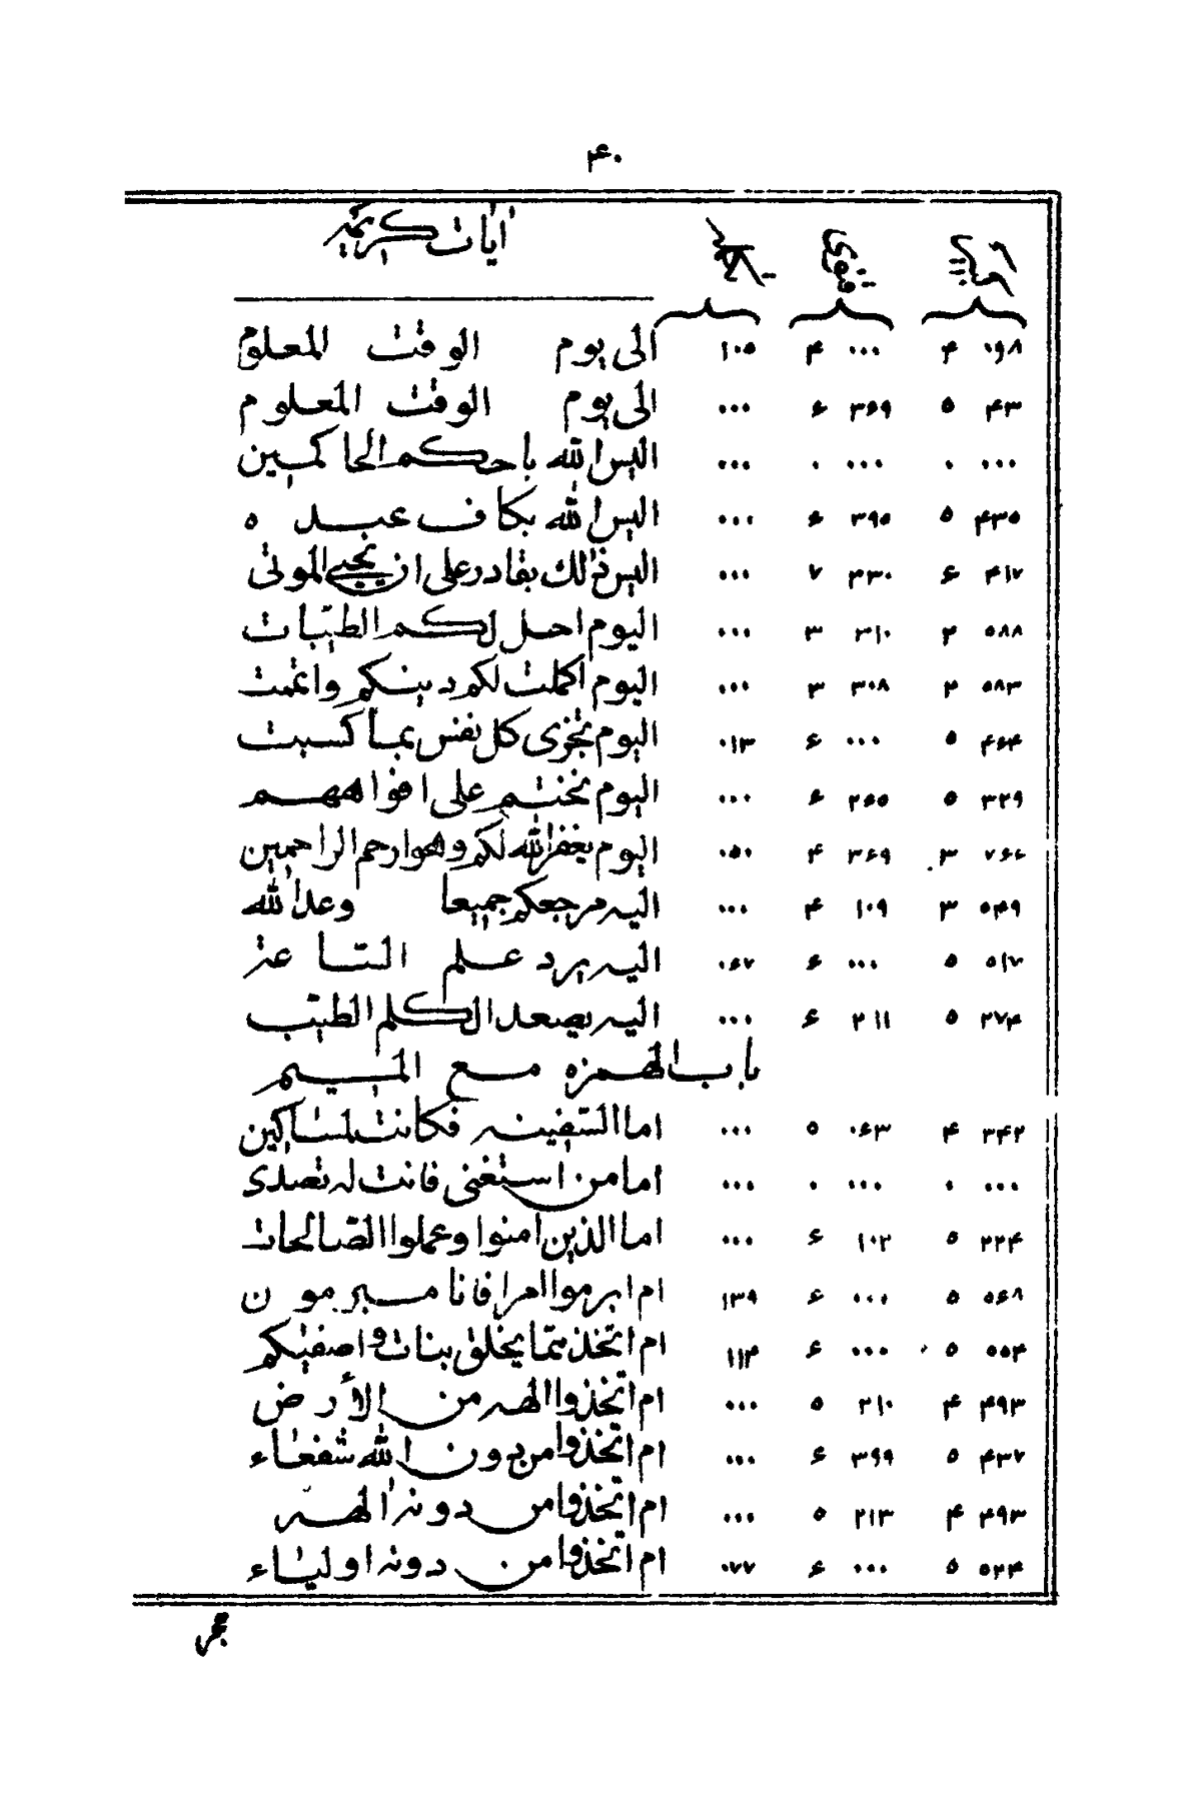 ۴۰
آیات کریمه
۰۹۸ ۴ ۰۰۰ ۴ ۱۰۵ الی یوم الوقت المعلوم
۴۳ ۵ ۳۶۹ ۶ ۰۰۰ الی یوم الوقت المعلوم
۰۰۰ ۰ ۰۰۰ ۰ ۰۰۰ الیس الله باحکم الحاکمین
۴۳۵ ۵ ۳۹۵ ۶ ۰۰۰ الیس الله بکاف عبده
۴۱۷ ۶ ۴۳۰ ۷ ۰۰۰ الیس ذالک بقادر علی ان یحیی الموتی
۵۸۸ ۲ ۳۱۰ ۳ ۰۰۰ الیوم احل لکم الطیبات
۵۸۳ ۲ ۳۰۸ ۳ ۰۰۰ الیوم اکملت لکم دینکم واتممت
۴۶۴ ۵ ۰۰۰ ۶ ۰۱۳ الیوم تجزی کل نفس بما کسبت
۳۲۹ ۵ ۲۶۵ ۶ ۰۰۰ الیوم نختم علی افواههم
۳ ۳۶۹ ۴ ۰۵۰ الیوم یغفر الله لکم وهو ارحم الراحمین
۵۴۹ ۳ ۱۰۹ ۴ ۰۰۰ الیه مرجعکم جمیعا وعد الله
۵۱۷ ۵ ۰۰۰ ۶ ۰۶۷ الیه یرد علم الساعة
۲۷۴ ۵ ۲۱۱ ۶ ۰۰۰ الیه یصعد الکلم الطیب
باب الهمزه مع المیم
۳۴۲ ۴ ۰۶۳ ۵ ۰۰۰ اما السفینه فکانت لمساکین
۰۰۰ ۰ ۰۰۰ ۰ ۰۰۰ اما من استغنی فانت له تصدی
۲۲۴ ۵ ۱۰۲ ۶ ۰۰۰ اما الذین امنوا وعملوا الصالحات
۵۶۸ ۵ ۰۰۰ ۶ ۱۳۹ ام ابرموا امرا فانا مبرمون
۵۵۴ ۵ ۰۰۰ ۶ ۱۱۴ ام اتخذ مما یخلق بنات واصفیکم
۴۹۳ ۴ ۲۱۰ ۵ ۰۰۰ ام اتخذوا الهه من الأرض
۴۳۷ ۵ ۳۹۹ ۶ ۰۰۰ ام اتخذوا من دون الله شفعاء
۴۹۳ ۴ ۲۱۳ ۵ ۰۰۰ ام اتخذوا من دونه الهه
۵۲۴ ۵ ۰۰۰ ۶ ۰۷۷ ام اتخذوا من دونه اولیاء